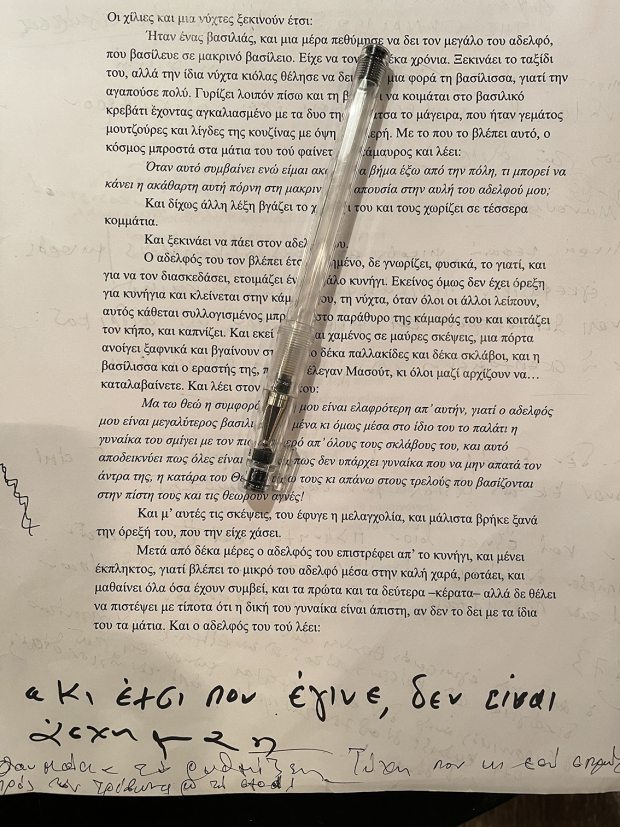 Οι χίλιες και μια νύχτες ξεκινούν έτσι:
Ήταν ένας βασιλιάς, και μια μέρα πεθύμησε να δει τον μεγάλο του αδελφό,
που βασίλευε σε μακρινό βασίλειο. Είχε να τον έκα χρόνια. Ξεκινάει το ταξίδι
του, αλλά την ίδια νύχτα κιόλας θέλησε να δει μια φορά τη βασίλισσα, γιατί την
αγαπούσε πολύ. Γυρίζει λοιπόν πίσω και τη β να κοιμάται στο βασιλικό
κρεβάτι έχοντας αγκαλιασμένο με τα δυο της τσα το μάγειρα, που ήταν γεμάτος
μουτζούρες και λίγδες της κουζίνας με όψη ερή. Με το που το βλέπει αυτό, ο
κόσμος μπροστά στα μάτια του τού φαίνετ άμαυρος και λέει:
Όταν αυτό συμβαίνει ενώ είμαι ακό βήμα έξω από την πόλη, τι μπορεί να
κάνει η ακάθαρτη αυτή πόρνη στη μακριν απουσία στην αυλή του αδελφού μου;
Και δίχως άλλη λέξη βγάζει το χ ι του και τους χωρίζει σε τέσσερα
κομμάτια.
Και ξεκινάει να πάει στον αδελ ου.
Ο αδελφός του τον βλέπει έτσ ημένο, δε γνωρίζει, φυσικά, το γιατί, και
για να τον διασκεδάσει, ετοιμάζει έν άλο κυνήγι. Εκείνος όμως δεν έχει όρεξη
για κυνήγια και κλείνεται στην κάμ ου, τη νύχτα, όταν όλοι οι άλλοι λείπουν,
αυτός κάθεται συλλογισμένος μπρ στο παράθυρο της κάμαράς του και κοιτάζει
τον κήπο, και καπνίζει. Και εκεί αι χαμένος σε μαύρες σκέψεις, μια πόρτα
ανοίγει ξαφνικά και βγαίνουν στ ο δέκα παλλακίδες και δέκα σκλάβοι, και η
βασίλισσα και ο εραστής της, π έλεγαν Μασούτ, κι όλοι μαζί αρχίζουν να…
καταλαβαίνετε. Και λέει στον κου:
Μα τω θεώ η συμφορά μου είναι ελαφρότερη απ’ αυτήν, γιατί ο αδελφός
μου είναι μεγαλύτερος βασιλι μένα κι όμως μέσα στο ίδιο του το παλάτι η
γυναίκα του σμίγει με τον πιο ερό απ’ όλους τους σκλάβους του, και αυτό
αποδεικνύει πως όλες είναι πως δεν υπάρχει γυναίκα που να μην απατά τον
άντρα της, η κατάρα του Θε ω τους κι απάνω στους τρελούς που βασίζονται
στην πίστη τους και τις θεωρούν αγνές!
Και μ’ αυτές τις σκέψεις, του έφυγε η μελαγχολία, και μάλιστα βρήκε ξανά
την όρεξή του, που την είχε χάσει.
Μετά από δέκα μέρες ο αδελφός του επιστρέφει απ’ το κυνήγι, και μένει
έκπληκτος, γιατί βλέπει το μικρό του αδελφό μέσα στην καλή χαρά, ρωτάει, και
μαθαίνει όλα όσα έχουν συμβεί, και τα πρώτα και τα δεύτερα –κέρατα– αλλά δε θέλει
να πιστέψει με τίποτα ότι η δική του γυναίκα είναι άπιστη, αν δεν το δει με τα ίδια
του τα μάτια. Και ο αδελφός του τού λέει:
« Κι έτσι που έγινε, δεν είναι
άσχημα